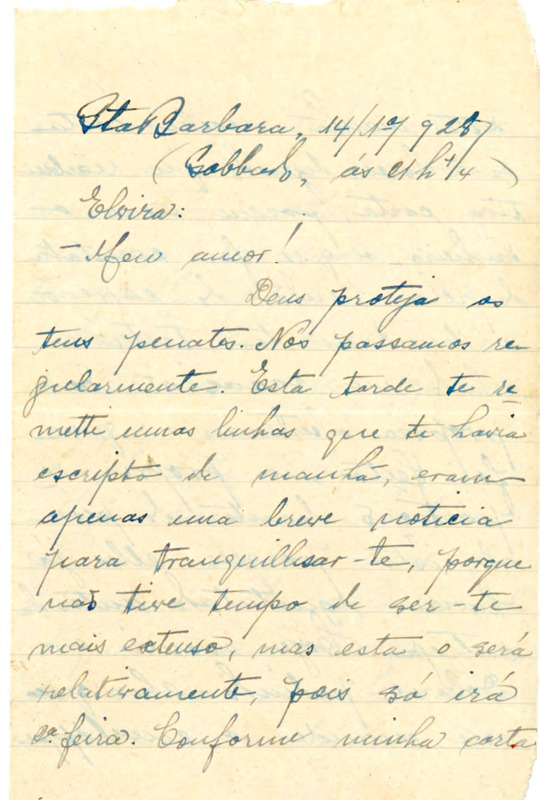 Sta Barbara, 14/1º/928
(Sabbado, ás 21h 1/4)
Elvira:
- Meu amor!
Deus proteja os
teus penates. Nós passamos re-
gularmente. Esta tarde te re-
metti umas linhas que te havia
escripto de manhã, eram
apenas uma breve noticia
para tranquillisar-te, porque
não tive tempo de ser-te
mais extenso, mas esta o será
relativamente, pois só irá
2ª feira. Conforme minha carta